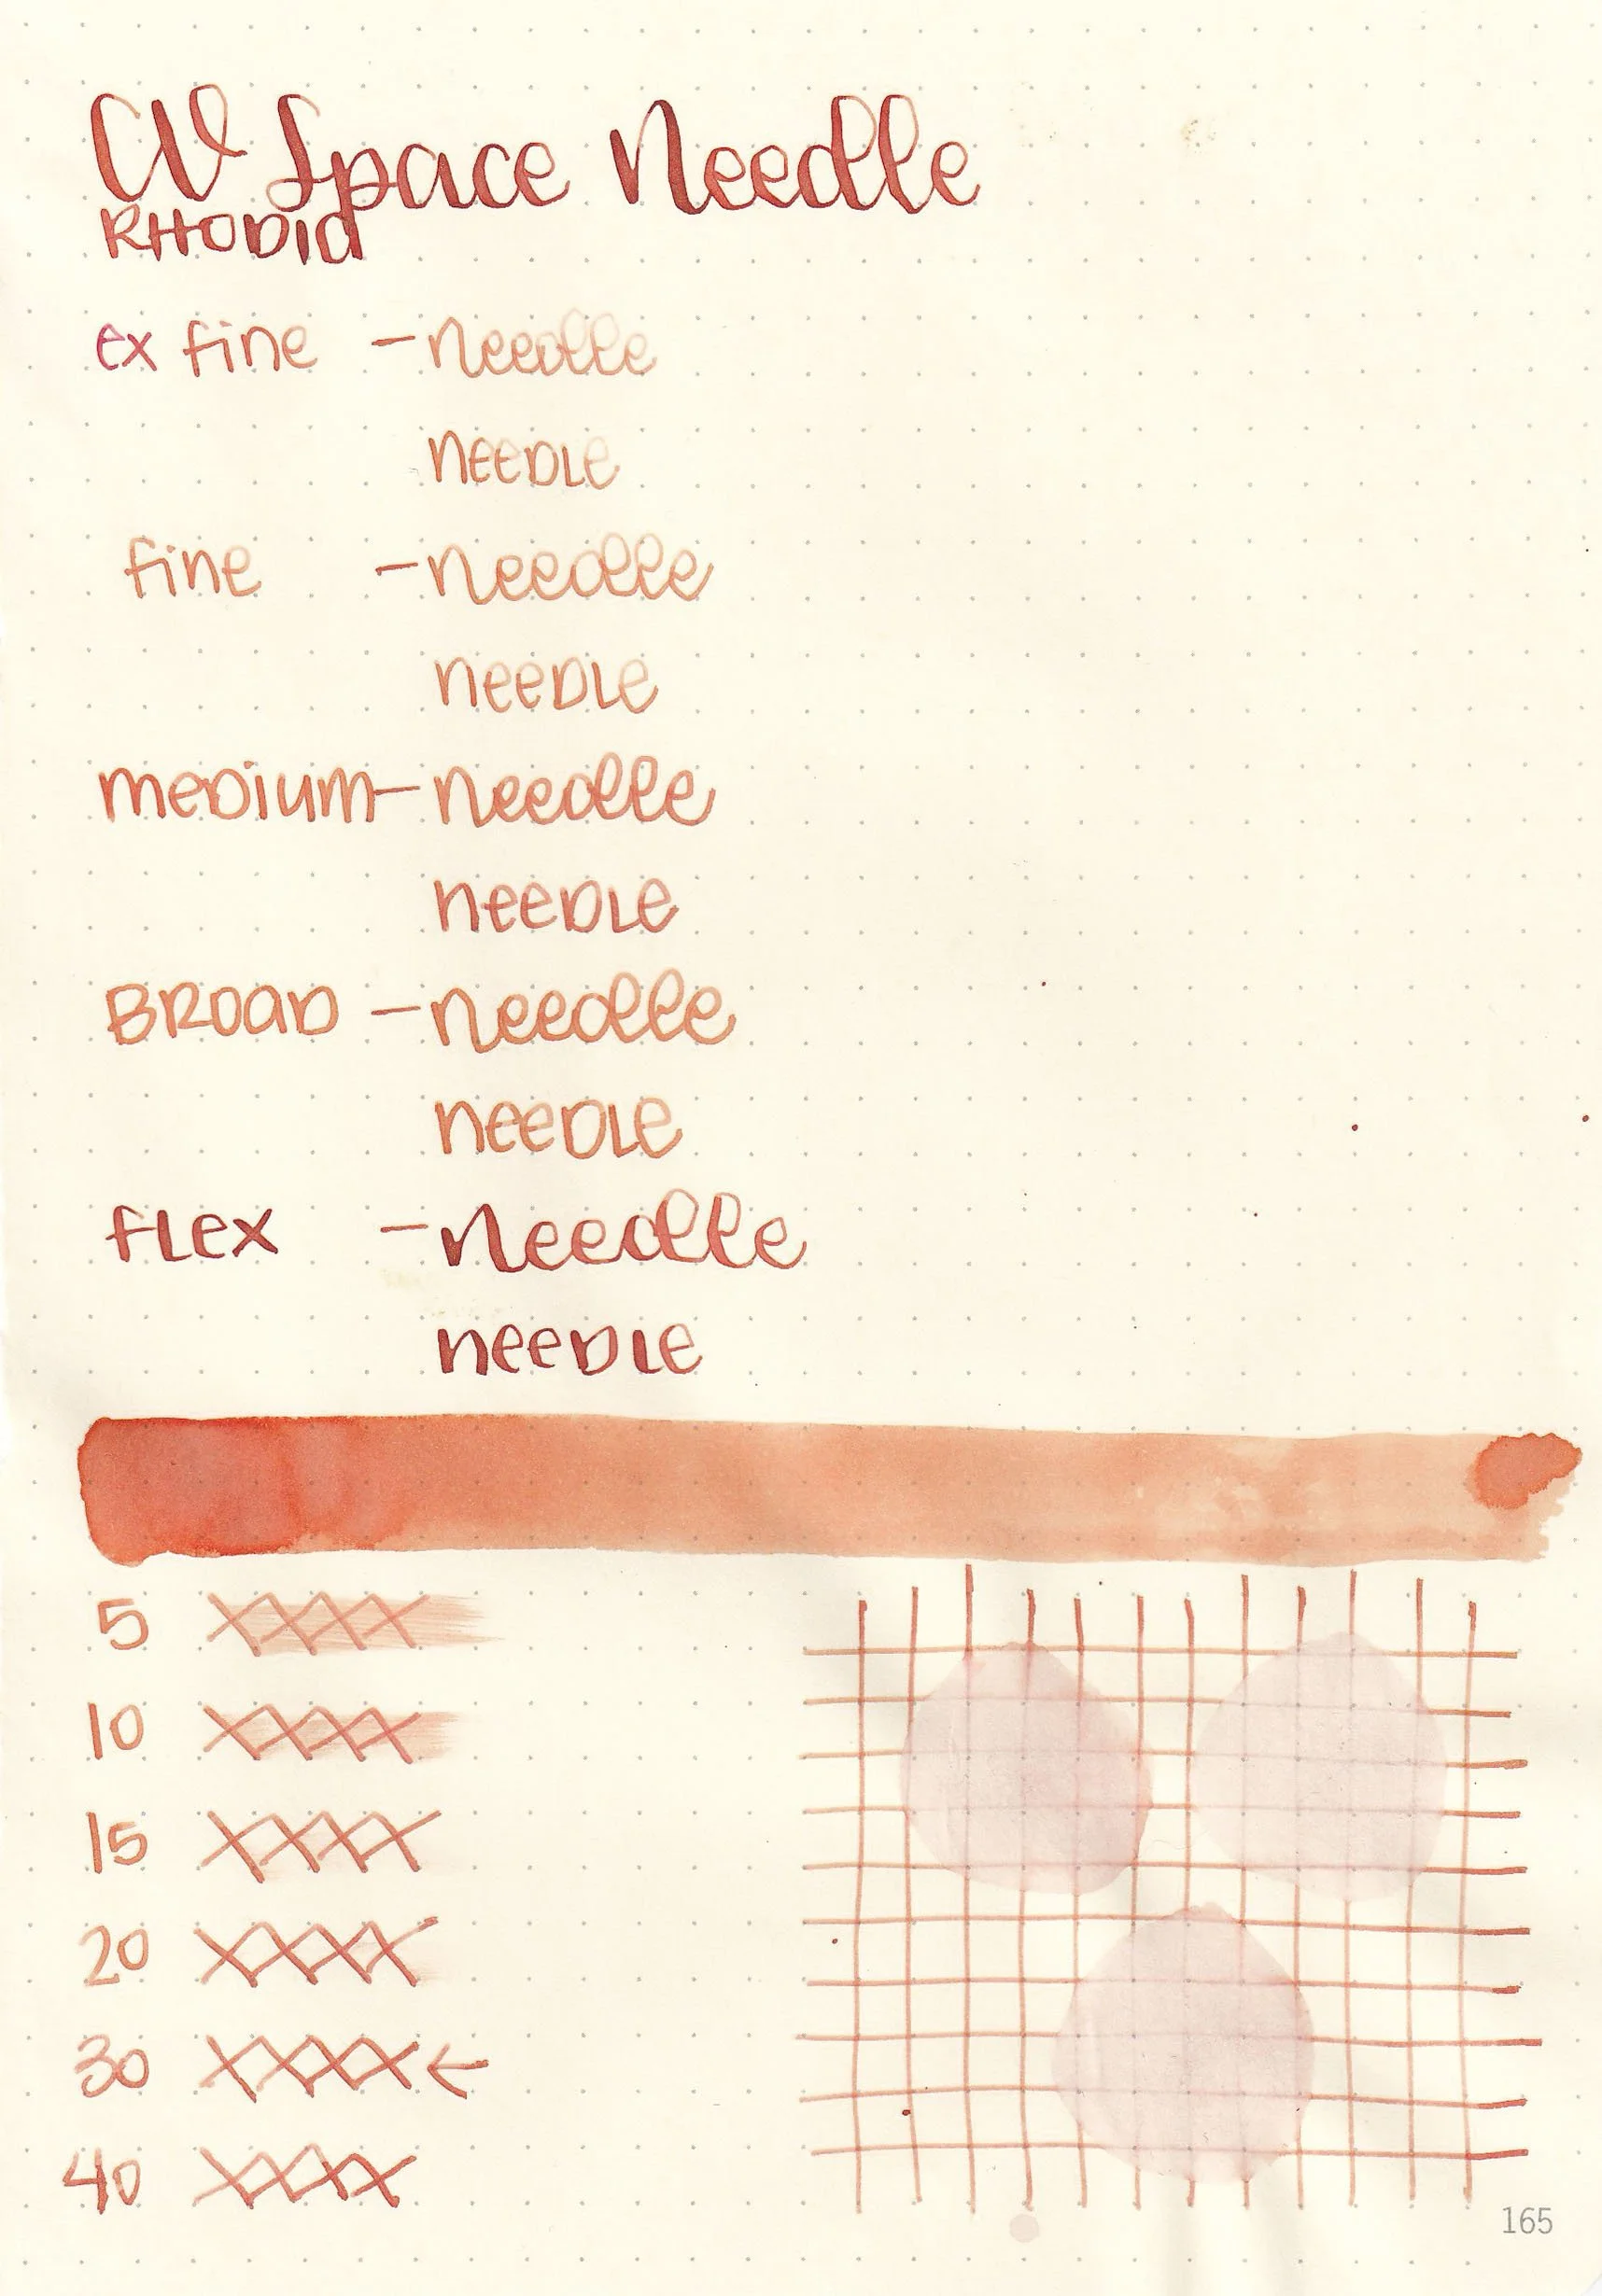 CV Space Needle
RHODIA
ex fine - needle
needle
fine - needle
needle
medium - needle
needle
BROAD - needle
needle
flex - needle
needle
5 XXXX
10 XXXX
15 XXXX
20 XXXX
30 XXXX ←
40 XXXX
165